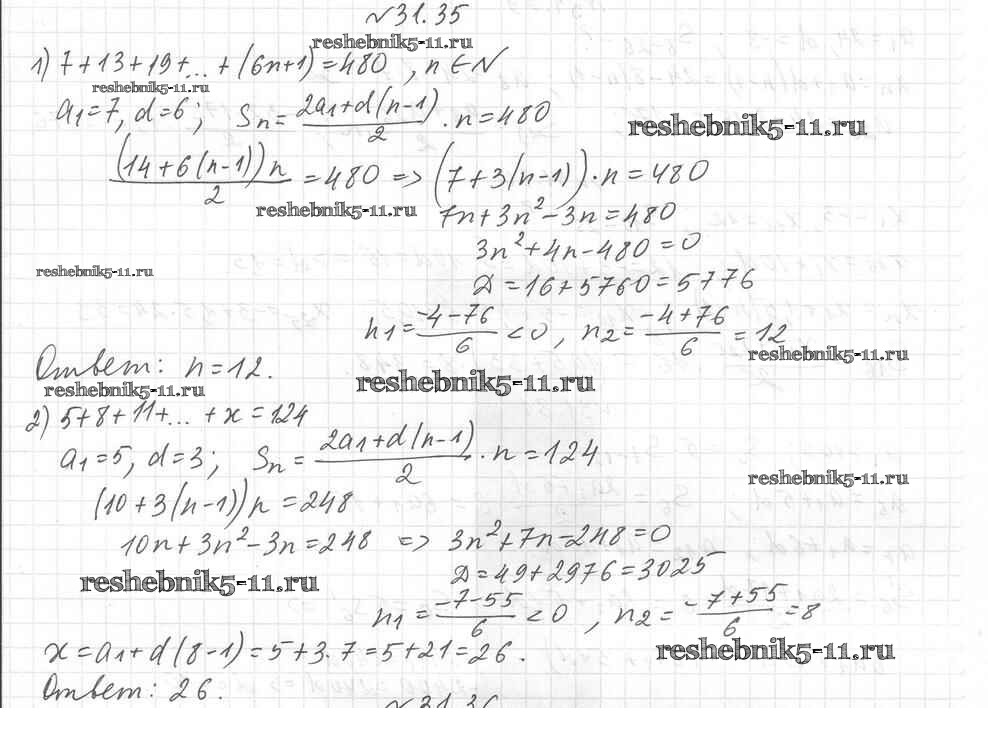 №31.35
reshebnik5-11.ru
1) 7+13+19+...+(6n+1)=480, n∈N
reshebnik5-11.ru
a1=7, d=6; Sn=(2a1+d(n-1))/2·n=480
reshebnik5-11.ru
((14+6(n-1))n)/2=480 => (7+3(n-1))·n=480
reshebnik5-11.ru
7n+3n²-3n=480
3n²+4n-480=0
reshebnik5-11.ru
Д=16+5760=5776
n1=(-4-76)/6<0, n2=(-4+76)/6=12
reshebnik5-11.ru
Ответ: n=12.
reshebnik5-11.ru
reshebnik5-11.ru
2) 5+8+11+...+x=124
a1=5, d=3; Sn=(2a1+d(n-1))/2·n=124
reshebnik5-11.ru
(10+3(n-1))n=248
10n+3n²-3n=248 => 3n²+7n-248=0
reshebnik5-11.ru
Д=49+2976=3025
n1=(-7-55)/6<0, n2=(-7+55)/6=8
x=a1+d(8-1)=5+3·7=5+21=26.
reshebnik5-11.ru
Ответ: 26.
№31.36